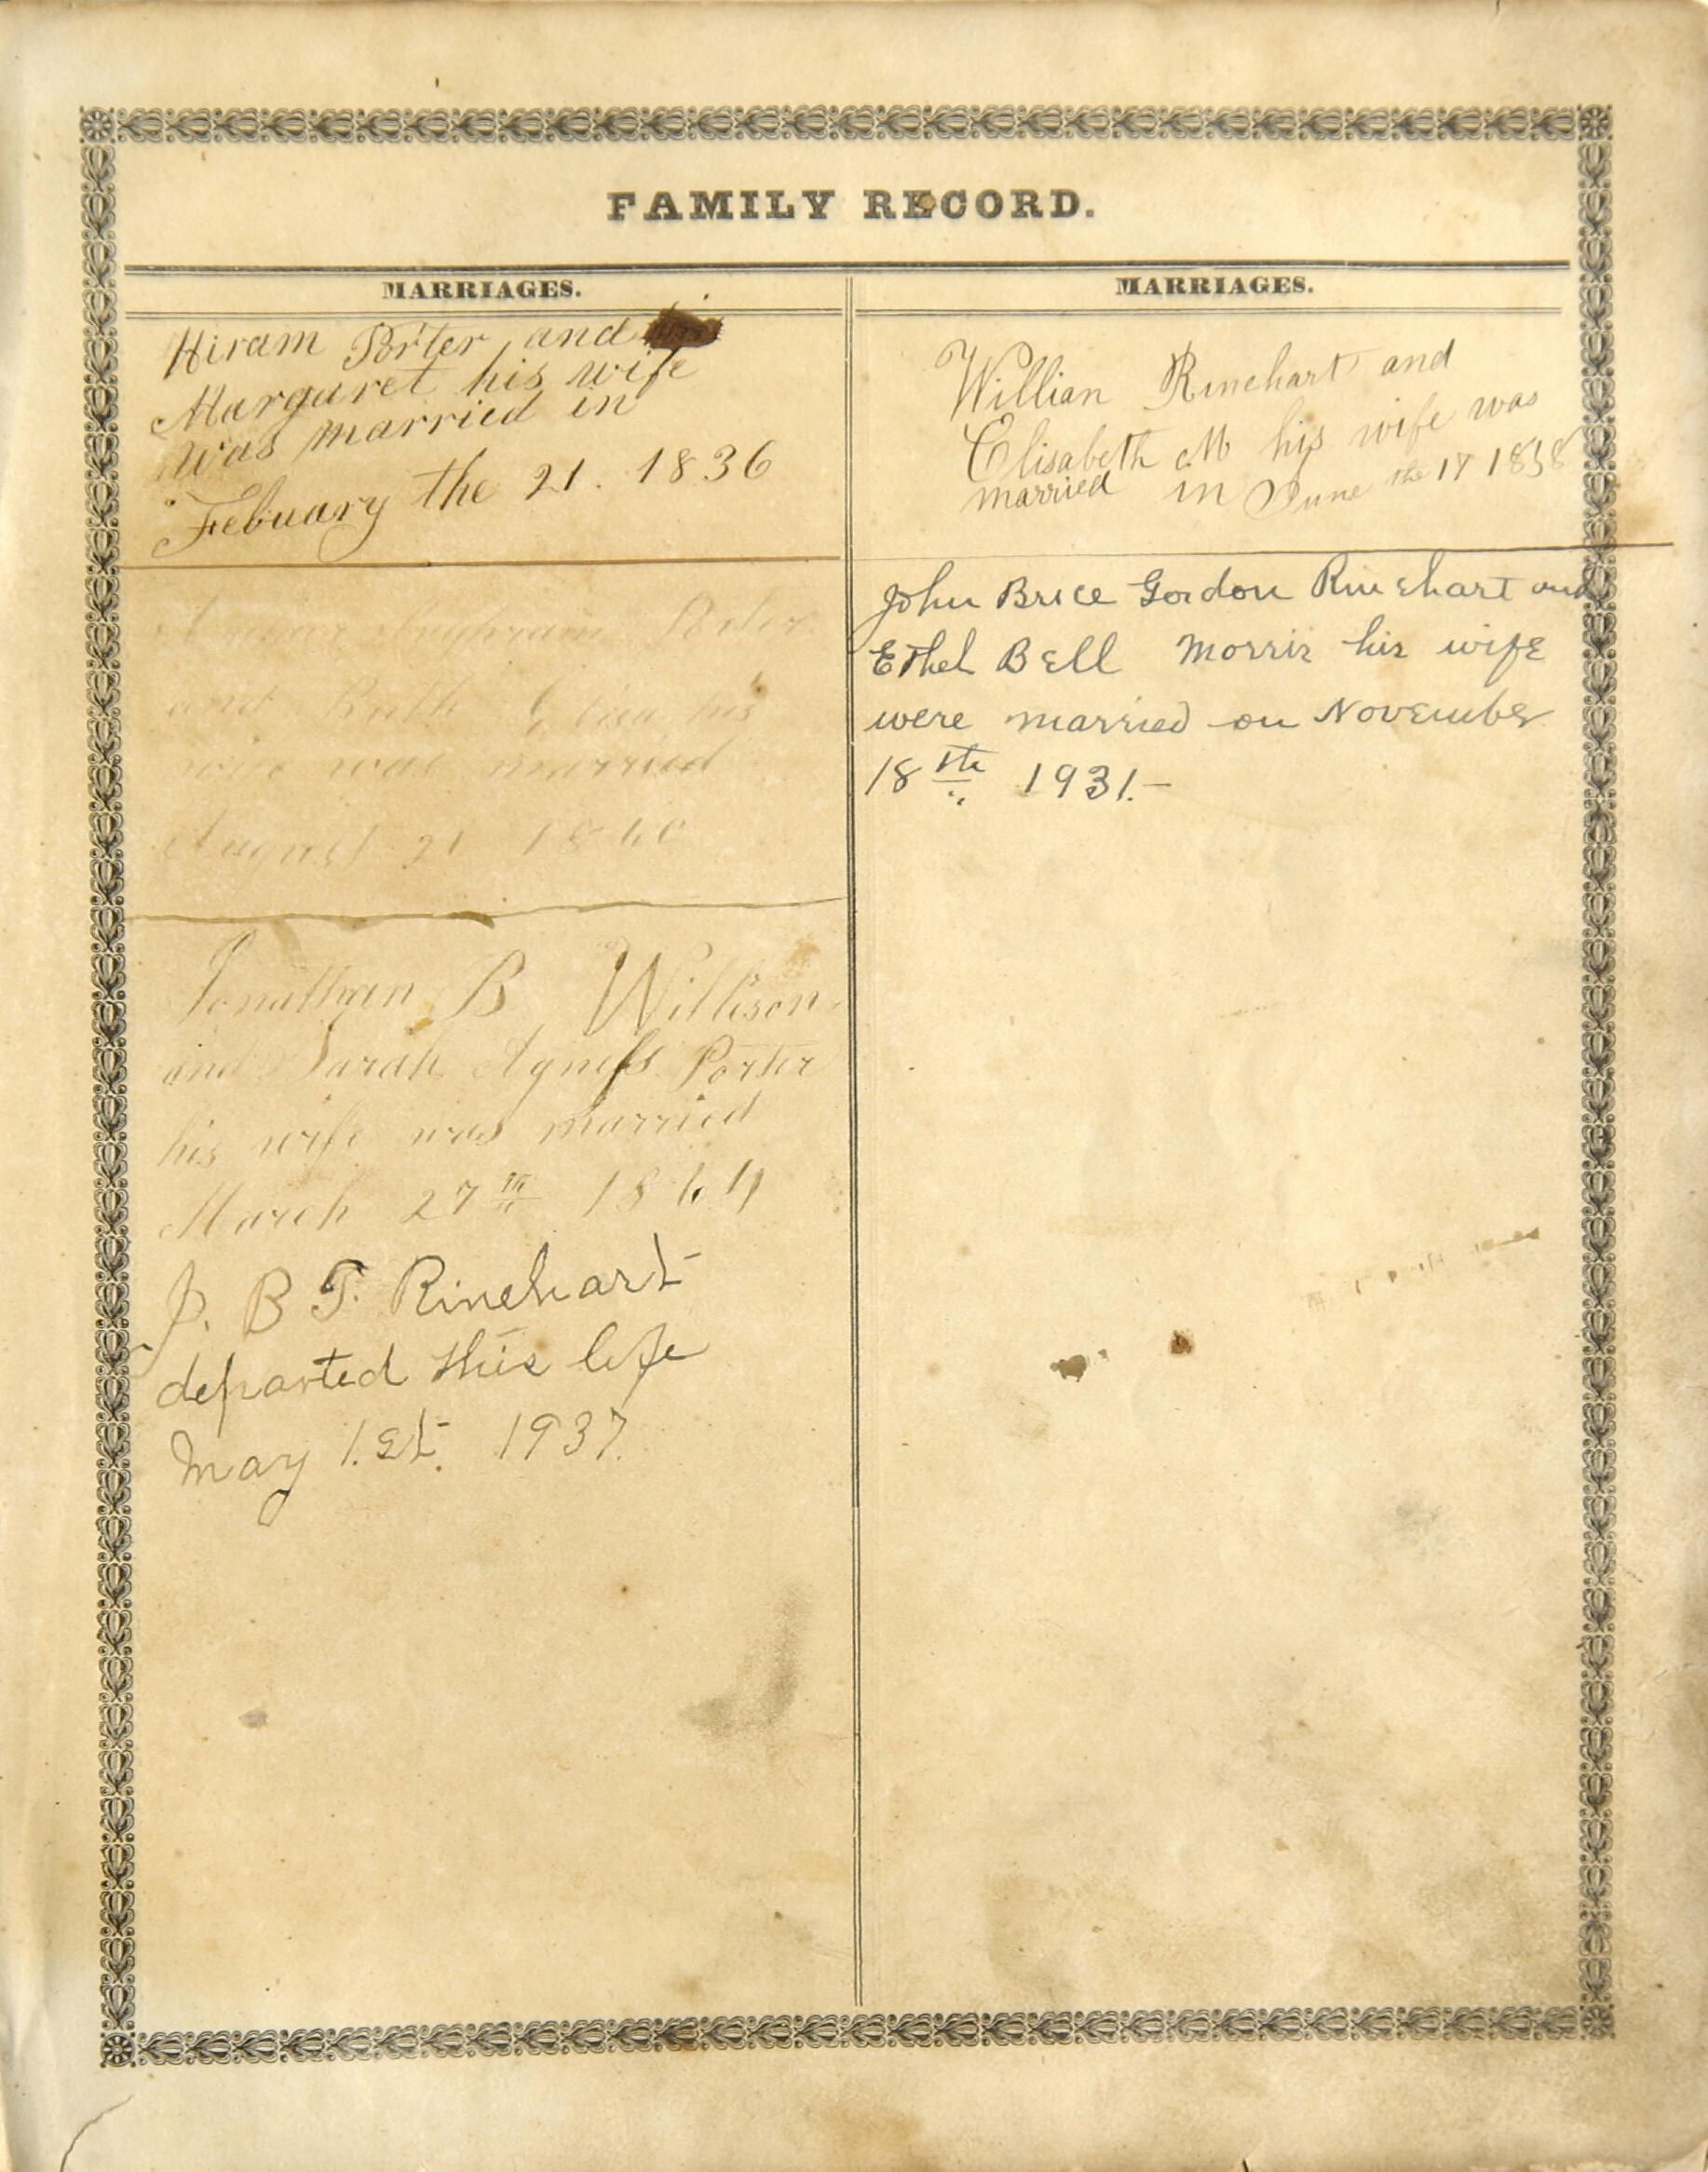 FAMILY RECORD.
MARRIAGES.
Hiram Porter and
Margaret his wife
was married in
Febuary the 21. 1836
Porter
and Ruth his
wife was married
August 21 1860
Jonathan B Willison
and Sarah Agness Porter
his wife was married
March 27th 1864
J. B T. Rinehart
departed this life
May 1.st. 1937.
MARRIAGES.
Willian Rinehart and
Elisabeth M his wife was
married in June the 17 1838
John Brice Gordon Rinehart and
Ethel Bell Morris his wife
were married on November
18th 1931.-